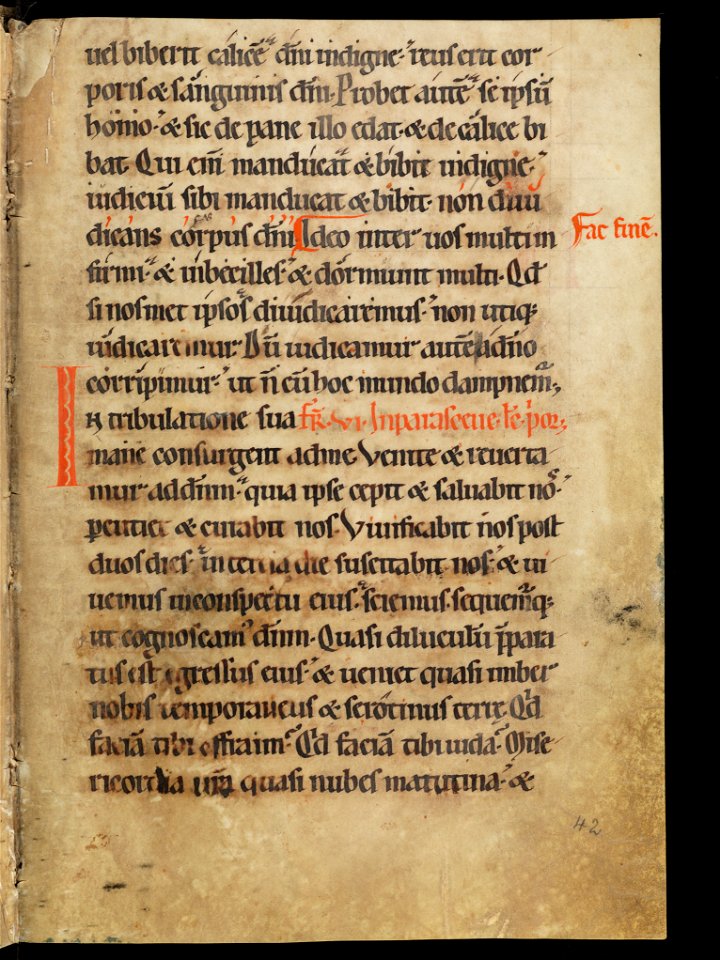 uel biberit calicē dn̄i indigne. reus erit cor
poris & sanguinis dn̄i. Probet autē se ipsū
homo. & sic de pane illo edat. & de calice bi
bat. Qui enī manducat & bibit indigne.
iudiciū sibi manducat & bibit. non diiu
dicans corpus dn̄i. Ideo inter uos multi in Fac finē.
firmi. & inbecilles. & dormiunt multi. Qd̄
si nosmet ipsos diiudicaremus. non utiq;
iudicaremur. Dū iudicamur autē a dn̄o
corripimur. ut n̄ cū hoc mundo dampnem̄;
IN tribulatione sua fr̄. VI. In parasceue. lc̄. por;
mane consurgent ad me. Venite & reuerta
mur ad dn̄m. quia ipse cepit & saluabit nos.
percutiet & curabit nos. Viuificabit nos post
duos dies. in tercia die suscitabit nos. & ui
uemus in conspectu eius. sciemus. sequem̄q;
ut cognoscam' dn̄m. Quasi diluculū p̄para
tus est egressus eius. & ueniet quasi imber
nobis temporaneus & serotinus terrę. Qd̄
faciā tibi effraim. Qd̄ faciā tibi iuda. Mise
ricordia ur̄a quasi nubes matutina. &
42